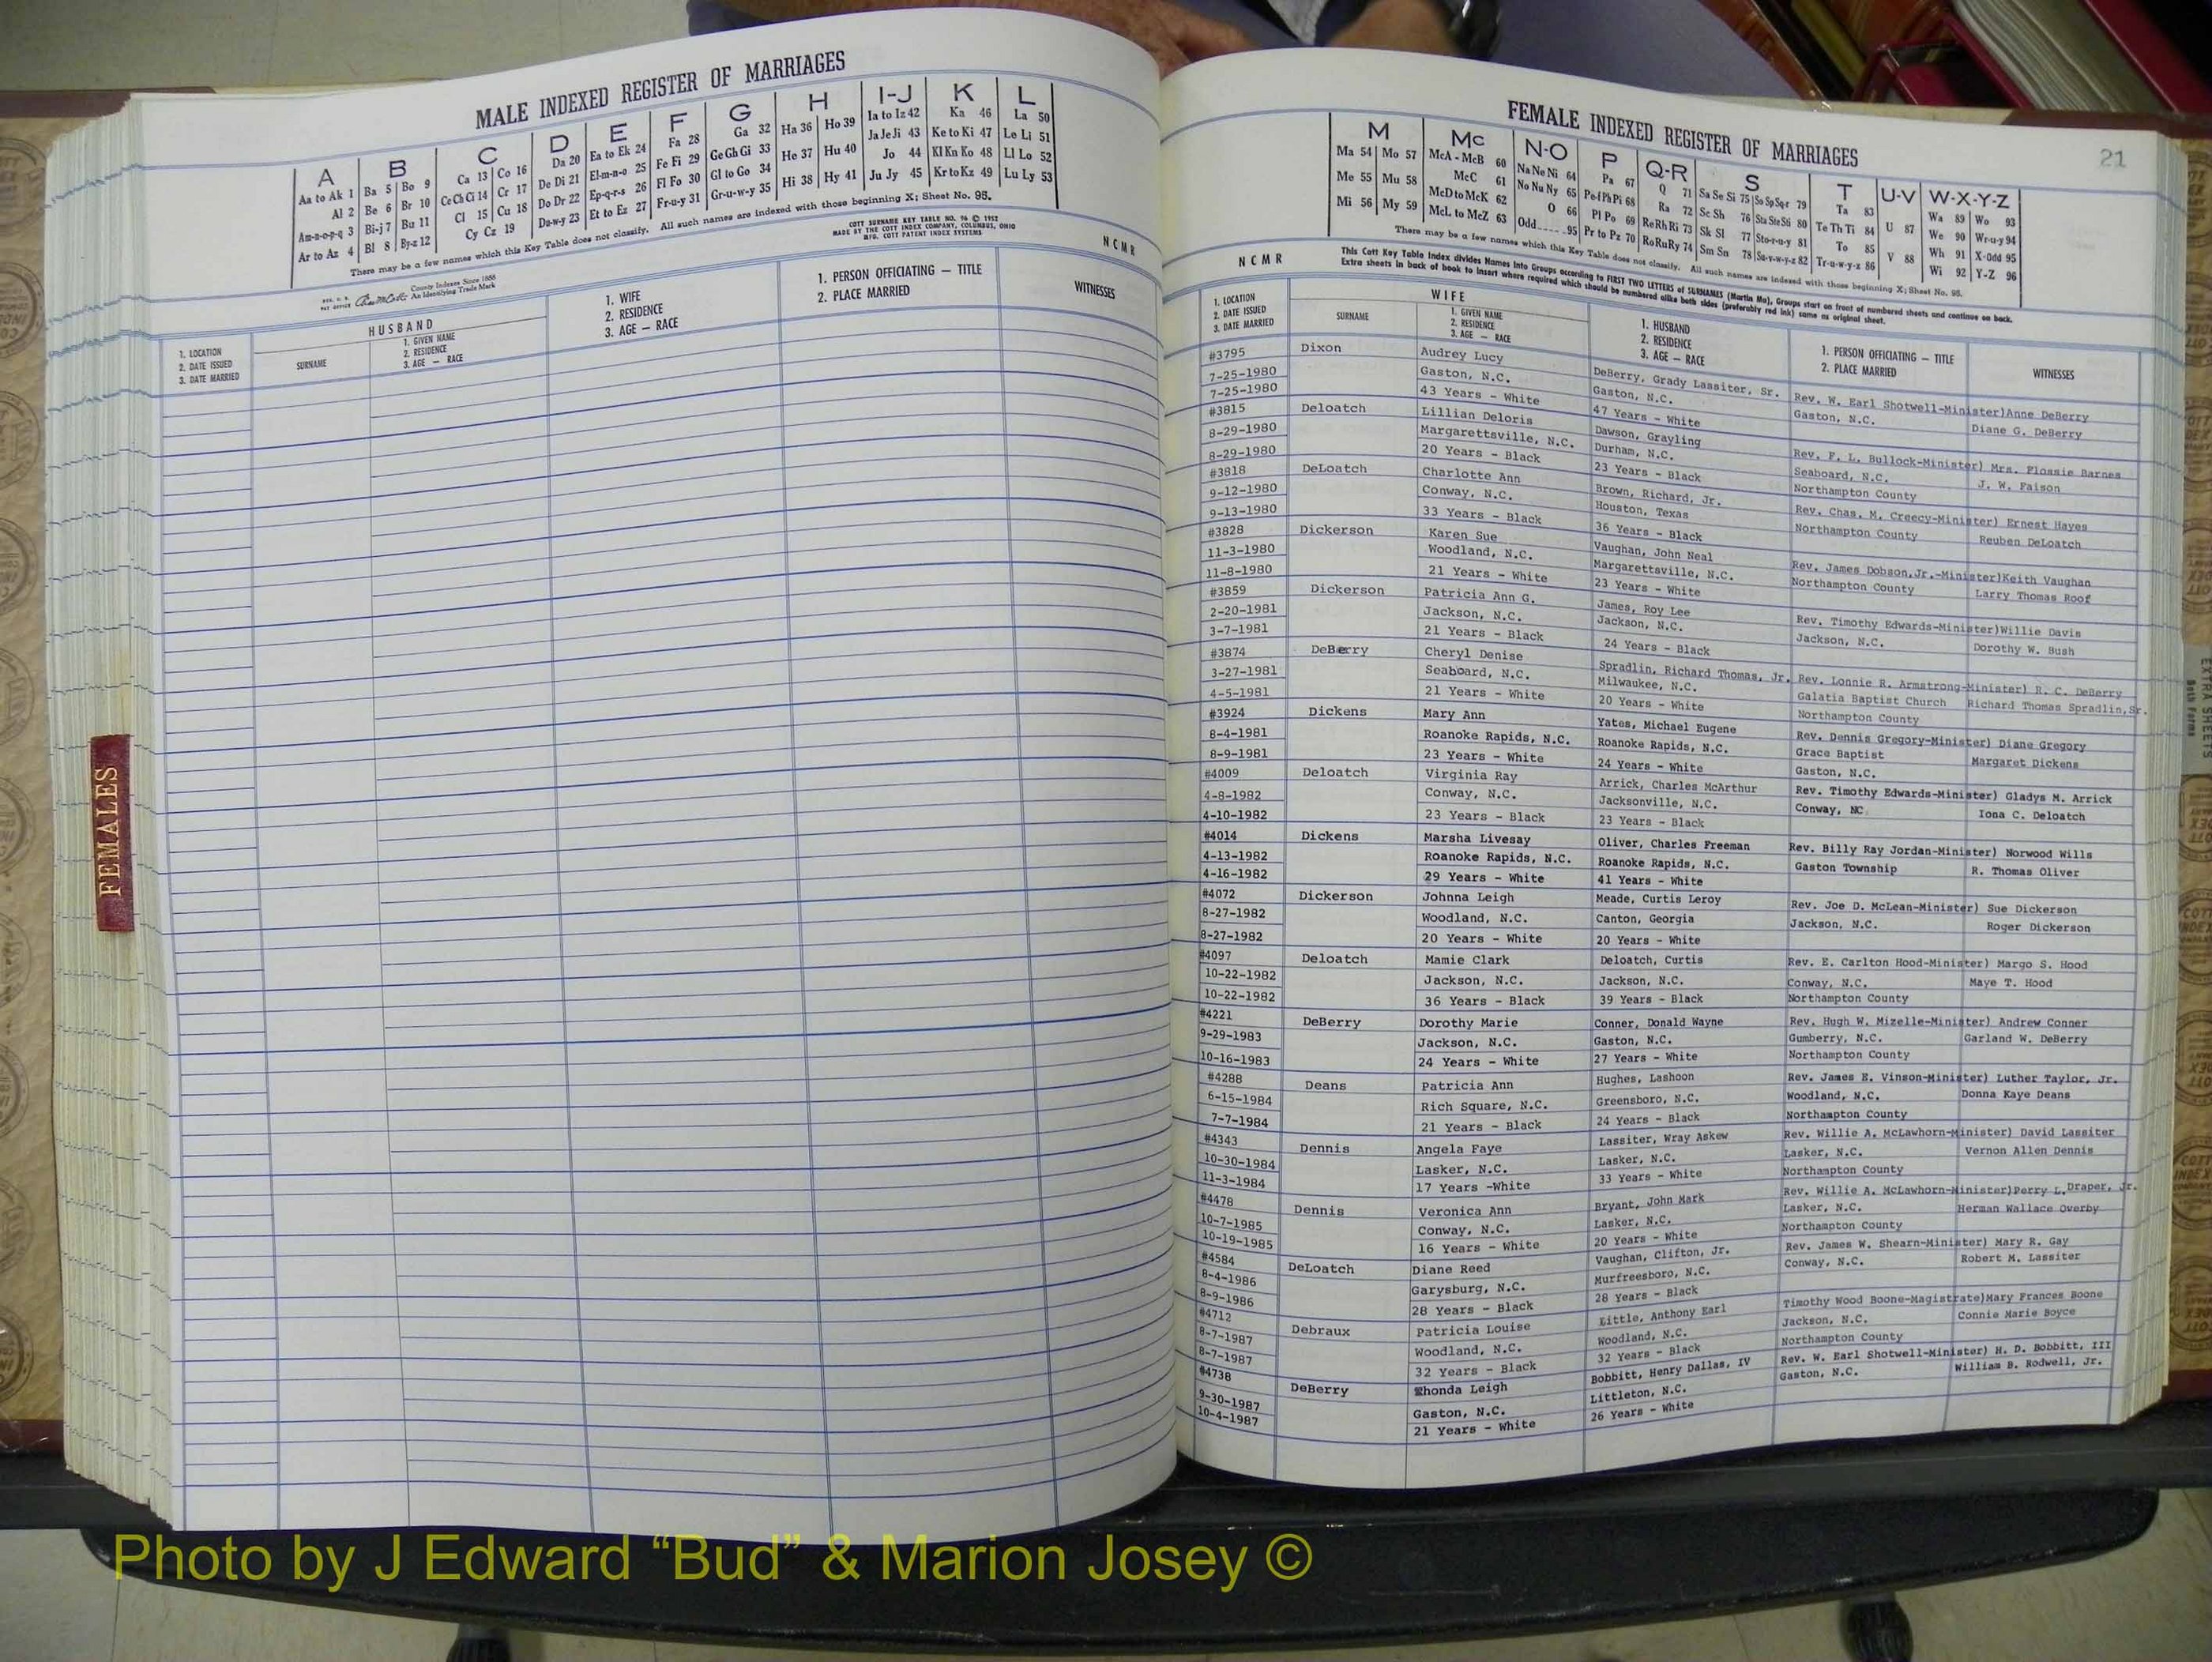 MALE INDEXED REGISTER OF MARRIAGES
A B C D E F G H I-J K L
Aa to Ak 1 Ba 5 Bo 9 Ca 13 Co 16 Da 20 Ea to Ek 24 Fa 28 Ga 32 Ha 36 Ho 39 Ia to Iz 42 Ka 46 La 50
Al 2 Be 6 Br 10 Ce Ch Ci 14 Cr 17 De Di 21 El-m-n-o 25 Fe Fi 29 Ge Gh Gi 33 He 37 Hu 40 Ja Je Ji 43 Ke to Ki 47 Le Li 51
Am-n-o-p-q 3 Bi-j 7 Bu 11 Cl 15 Cu 18 Do Dr 22 Ep-q-r-s 26 Fl Fo 30 Gl to Go 34 Hi 38 Hy 41 Jo 44 Kl Kn Ko 48 Ll Lo 52
Ar to Az 4 Bl 8 By-z 12 Cy Cz 19 Du-w-y 23 Et to Ez 27 Fr-u-y 31 Gr-u-w-y 35 Ju Jy 45 Kr to Kz 49 Lu Ly 53
There may be a few names which this Key Table does not classify. All such names are indexed with those beginning X; Sheet No. 95.
COTT SURNAME KEY TABLE NO. 96 © 1952
MADE BY THE COTT INDEX COMPANY, COLUMBUS, OHIO
MFG. COTT PATENT INDEX SYSTEMS
N C M R
County Indexes Since 1888
An Identifying Trade Mark
1. LOCATION
2. DATE ISSUED
3. DATE MARRIED
HUSBAND
SURNAME
1. GIVEN NAME
2. RESIDENCE
3. AGE — RACE
1. WIFE
2. RESIDENCE
3. AGE — RACE
1. PERSON OFFICIATING — TITLE
2. PLACE MARRIED
WITNESSES
FEMALES
FEMALE INDEXED REGISTER OF MARRIAGES
21
M Mc N-O P Q-R S T U-V W-X-Y-Z
Ma 54 Mo 57 McA - McB 60 Na Ne Ni 64 Pa 67 Q 71 Sa Se Si 75 So Sp Sq-r 79 Ta 83 U 87 Wa 89 Wo 93
Me 55 Mu 58 McC 61 No Nu Ny 65 Pe-f Ph Pi 68 Ra 72 Sc Sh 76 Sta Ste Sti 80 Te Th Ti 84 V 88 We 90 Wr-u-y 94
Mi 56 My 59 McD to McK 62 O 66 Pl Po 69 Re Rh Ri 73 Sk Sl 77 Sto-r-u-y 81 To 85 Wh 91 X-Odd 95
McL to McZ 63 Odd 95 Pr to Pz 70 Ro Ru Ry 74 Sm Sn 78 Su-v-w-y-z 82 Tr-u-w-y-z 86 Wi 92 Y-Z 96
There may be a few names which this Key Table does not classify. All such names are indexed with those beginning X; Sheet No. 95.
N C M R
This Cott Key Table Index divides Names into Groups according to FIRST TWO LETTERS of SURNAMES (Martin Ma), Groups start on front of numbered sheets and continue on back.
Extra sheets in back of book to insert where required which should be numbered alike both sides (preferably red ink) same as original sheet.
1. LOCATION
2. DATE ISSUED
3. DATE MARRIED
WIFE
SURNAME
1. GIVEN NAME
2. RESIDENCE
3. AGE — RACE
1. HUSBAND
2. RESIDENCE
3. AGE — RACE
1. PERSON OFFICIATING — TITLE
2. PLACE MARRIED
WITNESSES
#3795 Dixon Audrey Lucy DeBerry, Grady Lassiter, Sr. Rev. W. Earl Shotwell-Minister)Anne DeBerry
7-25-1980 Gaston, N.C. Gaston, N.C. Gaston, N.C. Diane G. DeBerry
7-25-1980 43 Years - White 47 Years - White
#3815 Deloatch Lillian Deloris Dawson, Grayling Rev. F. L. Bullock-Minister) Mrs. Flossie Barnes
8-29-1980 Margarettsville, N.C. Durham, N.C. Seaboard, N.C. J. W. Faison
8-29-1980 20 Years - Black 23 Years - Black Northampton County
#3818 DeLoatch Charlotte Ann Brown, Richard, Jr. Rev. Chas. M. Creecy-Minister) Ernest Hayes
9-12-1980 Conway, N.C. Houston, Texas Northampton County Reuben DeLoatch
9-13-1980 33 Years - Black 36 Years - Black
#3828 Dickerson Karen Sue Vaughan, John Neal Rev. James Dobson,Jr.-Minister)Keith Vaughan
11-3-1980 Woodland, N.C. Margarettsville, N.C. Northampton County Larry Thomas Roof
11-8-1980 21 Years - White 23 Years - White
#3859 Dickerson Patricia Ann G. James, Roy Lee Rev. Timothy Edwards-Minister)Willie Davis
2-20-1981 Jackson, N.C. Jackson, N.C. Jackson, N.C. Dorothy W. Bush
3-7-1981 21 Years - Black 24 Years - Black
#3874 DeBerry Cheryl Denise Spradlin, Richard Thomas, Jr. Rev. Lonnie R. Armstrong-Minister) R. C. DeBerry
3-27-1981 Seaboard, N.C. Milwaukee, N.C. Galatia Baptist Church Richard Thomas Spradlin,Sr.
4-5-1981 21 Years - White 20 Years - White Northampton County
#3924 Dickens Mary Ann Yates, Michael Eugene Rev. Dennis Gregory-Minister) Diane Gregory
8-4-1981 Roanoke Rapids, N.C. Roanoke Rapids, N.C. Grace Baptist Margaret Dickens
8-9-1981 23 Years - White 24 Years - White Gaston, N.C.
#4009 Deloatch Virginia Ray Arrick, Charles McArthur Rev. Timothy Edwards-Minister) Gladys M. Arrick
4-8-1982 Conway, N.C. Jacksonville, N.C. Conway, NC Iona C. Deloatch
4-10-1982 23 Years - Black 23 Years - Black
#4014 Dickens Marsha Livesay Oliver, Charles Freeman Rev. Billy Ray Jordan-Minister) Norwood Wills
4-13-1982 Roanoke Rapids, N.C. Roanoke Rapids, N.C. Gaston Township R. Thomas Oliver
4-16-1982 29 Years - White 41 Years - White
#4072 Dickerson Johnna Leigh Meade, Curtis Leroy Rev. Joe D. McLean-Minister) Sue Dickerson
8-27-1982 Woodland, N.C. Canton, Georgia Jackson, N.C. Roger Dickerson
8-27-1982 20 Years - White 20 Years - White
#4097 Deloatch Mamie Clark Deloatch, Curtis Rev. E. Carlton Hood-Minister) Margo S. Hood
10-22-1982 Jackson, N.C. Jackson, N.C. Conway, N.C. Maye T. Hood
10-22-1982 36 Years - Black 39 Years - Black Northampton County
#4221 DeBerry Dorothy Marie Conner, Donald Wayne Rev. Hugh W. Mizelle-Minister) Andrew Conner
9-29-1983 Jackson, N.C. Gaston, N.C. Gumberry, N.C. Garland W. DeBerry
10-16-1983 24 Years - White 27 Years - White Northampton County
#4288 Deans Patricia Ann Hughes, Lashoon Rev. James E. Vinson-Minister) Luther Taylor, Jr.
6-15-1984 Rich Square, N.C. Greensboro, N.C. Woodland, N.C. Donna Kaye Deans
7-7-1984 21 Years - Black 24 Years - Black Northampton County
#4343 Dennis Angela Faye Lassiter, Wray Askew Rev. Willie A. McLawhorn-Minister) David Lassiter
10-30-1984 Lasker, N.C. Lasker, N.C. Lasker, N.C. Vernon Allen Dennis
11-3-1984 17 Years -White 33 Years - White Northampton County
#4478 Dennis Veronica Ann Bryant, John Mark Rev. Willie A. McLawhorn-Minister)Perry L.Draper, Jr.
10-7-1985 Conway, N.C. Lasker, N.C. Lasker, N.C. Herman Wallace Overby
10-19-1985 16 Years - White 20 Years - White Northampton County
#4584 DeLoatch Diane Reed Vaughan, Clifton, Jr. Rev. James W. Shearn-Minister) Mary R. Gay
8-4-1986 Garysburg, N.C. Murfreesboro, N.C. Conway, N.C. Robert M. Lassiter
8-9-1986 28 Years - Black 28 Years - Black
#4712 Debraux Patricia Louise Little, Anthony Earl Timothy Wood Boone-Magistrate)Mary Frances Boone
8-7-1987 Woodland, N.C. Woodland, N.C. Jackson, N.C. Connie Marie Boyce
8-7-1987 32 Years - Black 32 Years - Black Northampton County
#4738 DeBerry Rhonda Leigh Bobbitt, Henry Dallas, IV Rev. W. Earl Shotwell-Minister) H. D. Bobbitt, III
9-30-1987 Gaston, N.C. Littleton, N.C. Gaston, N.C. William B. Rodwell, Jr.
10-4-1987 21 Years - White 26 Years - White
Photo by J Edward “Bud” & Marion Josey ©